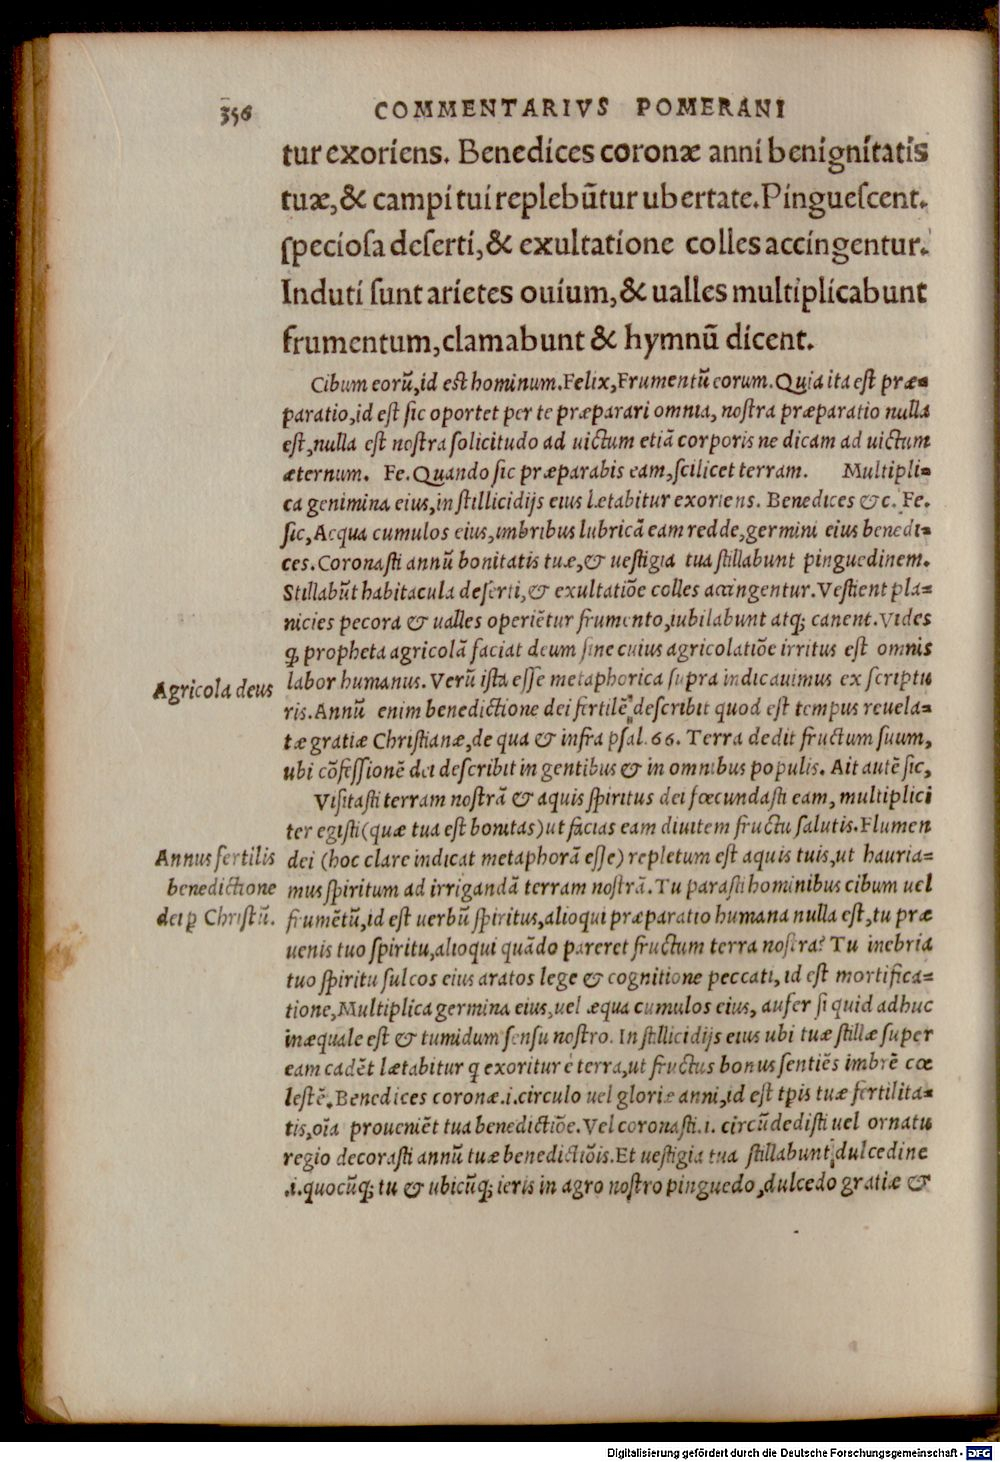 356 COMMENTARIVS POMERANI
tur exoriens. Benedices coronæ anni benignitatis
tuæ, & campi tui replebũtur ubertate. Pingueſcent
ſpecioſa deſerti, & exultatione colles accingentur.
Induti ſunt arietes ouium, & ualles multiplicabunt
frumentum, clamabunt & hymnũ dicent.
Cibum eorũ, id est hominum. Felix, Frumentũ eorum. Quia ita eſt præ-
paratio, id eſt ſic oportet per te præparari omnia, noſtra præparatio nulla
eſt, nulla eſt noſtra ſolicitudo ad uictum etiã corporis ne dicam ad uictum
æternum. Fe. Quando ſic præparabis eam, ſcilicet terram. Multipli-
ca genimina eius, in ſtillicidijs eius lætabitur exoriens. Benedices &c. Fe.
ſic, Acqua cumulos eius, imbribus lubricã eam redde, germini eius benedi-
ces. Coronaſti annũ bonitatis tuæ, & ueſtigia tua ſtillabunt pinguedinem.
Stillabũt habitacula deſerti, & exultatiõe colles accingentur. Veſtient pla-
nicies pecora & ualles operiẽtur frumento, iubilabunt atq; canent. Vides
q, propheta agricolã faciat deum ſine cuius agricolatiõe irritus eſt omnis
Agricola deus
labor humanus. Verũ iſta eſſe metaphorica ſupra indicauimus ex ſcriptu
ris. Annũ enim benedictione dei fertilẽ deſcribit quod eſt tempus reuela-
tæ gratiæ Chriſtianæ, de qua & infra pſal. 66. Terra dedit fructum ſuum,
ubi cõfeſſionẽ dei deſcribit in gentibus & in omnibus populis. Ait autẽ ſic,
Viſitaſti terram noſtrã & aquis ſpiritus dei fœcundaſti eam, multiplici
ter egiſti (quæ tua eſt bonitas) ut facias eam diuitem fructu ſalutis. Flumen
Annus fertilis
benedictione
dei p Chriſtũ.
dei (hoc clare indicat metaphorã eſſe) repletum eſt aquis tuis, ut hauria-
mus ſpiritum ad irrigandã terram noſtrã. Tu paraſti hominibus cibum uel
frumẽtũ, id eſt uerbũ ſpiritus, alioqui præparatio humana nulla eſt, tu præ
uenis tuo ſpiritu, alioqui quãdo pareret fructum terra noſtra? Tu inebria
tuo ſpiritu ſulcos eius aratos lege & cognitione peccati, id eſt mortifica-
tione, Multiplica germina eius, uel æqua cumulos eius, aufer ſi quid adhuc
inæquale eſt & tumidum ſenſu noſtro. In ſtillicidijs eius ubi tuæ ſtillæ ſuper
eam cadẽt lætabitur q exoritur è terra, ut fructus bonus ſentiẽs imbrẽ cœ
leſtẽ. Benedices coronæ .i. circulo uel gloriæ anni, id eſt tp̃is tuæ fertilita-
tis, oĩa proueniẽt tua benedictiõe. Vel coronaſti .i. circũdediſti uel ornatu
regio decoraſti annũ tuæ benedictiõis. Et ueſtigia tua ſtillabunt dulcedine
.i. quocũq; tu & ubicũq; ieris in agro noſtro pinguedo, dulcedo gratiæ &
Digitalisierung gefördert durch die Deutsche Forschungsgemeinschaft - DFG